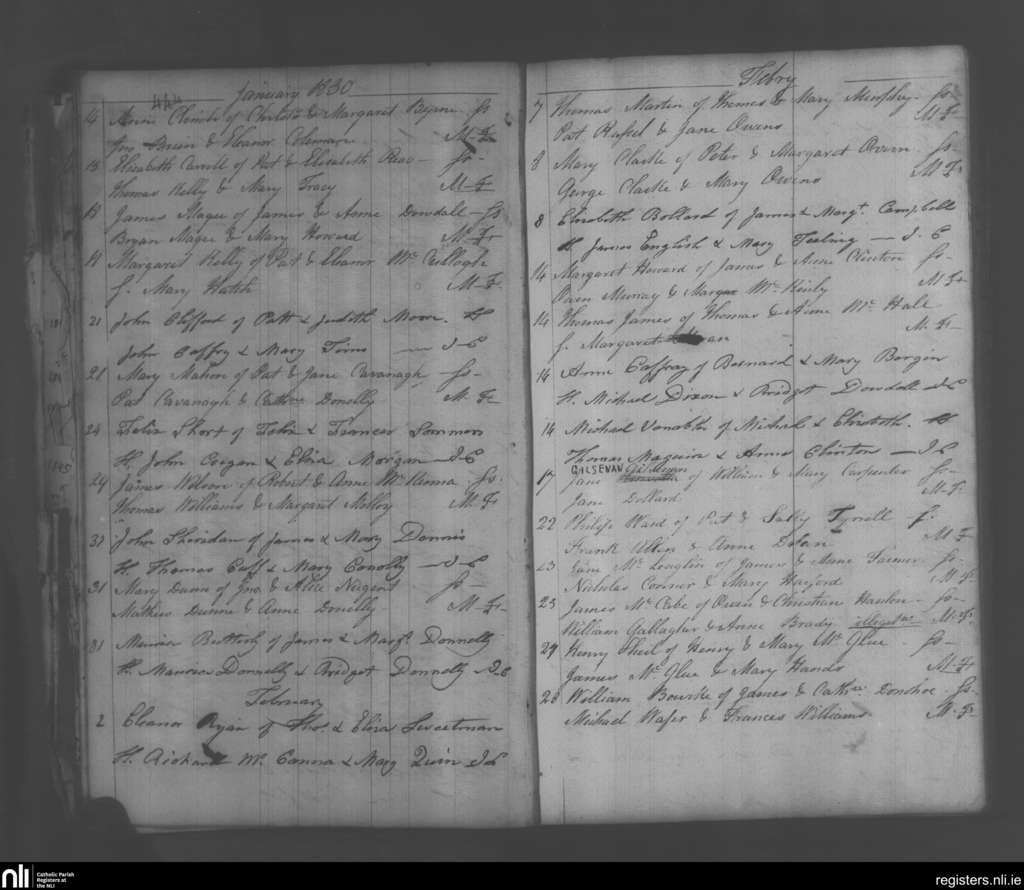 January 1830
14 Anne Clinch of Charles & Margaret Byrne fs
Jno Breen & Eleanor M. F
18 Elizabeth Carroll of Pat & Elisabeth fs
Thomas Kelly & Mary Tracy M. F
18 James Magee of James & Anne Dowdall fs
Bryan Magee & Mary Howard M. F
19 Margaret Kelly of Pat & Eleanor Mc Cullogh
f. Mary Walsh M. F.
21 John Clifford of Patt & Judith Moore
John Caffry & Mary Tirns J C
21 Mary Mahon of Pat & Jane Cavanagh fs
Pat Cavanagh & Cathne Donelly M. F
24 Felix Short of Felix & Frances Sommers
H. John Corgan & Eliza Morgan J C
29 James Wilson of Robert & Anne Mc Kenna fs.
Thomas Williams & Margaret Molloy M. F
31 John Sheridan of James & Mary Dennis
H. Thomas Caff & Mary Conolly J C
31 Mary Dunn of Jno & Allie Nugent fs
Mathew Dunne & Anne Donelly M. F
31 of James & Margt Donnelly
H. Donnelly & Bridget Donnelly J C
February
2 Eleanor Ryan of Thos & Eliza Sweetman
H. Richard Mc Canna & Mary Quin J C
Febry
7 Thomas Martin of Thomas & Mary Murphy fs
Pat Russel & Jane Owens M F
8 Mary Clarke of Peter & Margaret Owen fs
George Clarke & Mary Owens M F.
8 Elizabeth Bollard of James & Margt Campbell
H James English & Mary Teeling J. C
14 Margaret Howard of James & Anne Clinton fs
Owen Murray & Margae Mc M F
14 Thomas James of Thomas & Anne Mc Hale
f. Margaret M. F
14 Anne Caffray of Bernard & Mary Bergin
H. Michael Dixon & Bridget Dowdall J C
14 Michael of Michael & Elizabeth H
Thomas Maguire & Anne Clinton J C
GILSEVAN
17 Jane of William & Mary Carpenter fs
Jane Dollard M. F
22 Philip Ward of Pat & Sally Tyrrell f.
Frank Allen & Anne Dolan M F
23 Jane Mc Loughlin of James & Anne fs
Nicholas Connor & Mary Hayford M F
25 James Mc Cabe of Owen & Christian Hanlon fs
William Gallagher & Anne Brady M. F
27 Henry Theel of Henry & Mary Mc Glue fs
James Mc Glue & Mary Hands M. F
28 William Bourke of James & Cathne Donohoe fs.
Michael Wafer & Frances Williams M. F
nli
Catholic Parish
Registers at
the NLI
registers.nli.ie